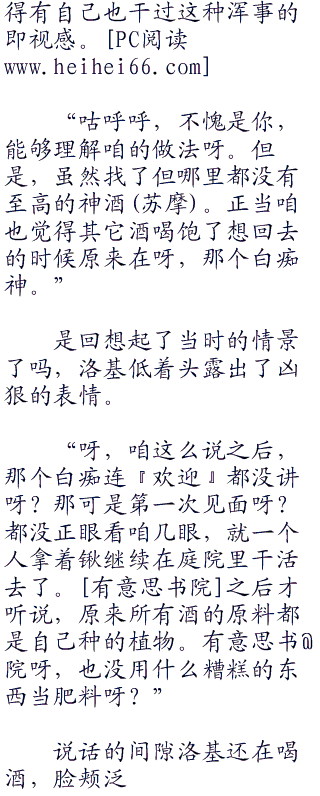 得有自己也干过这种浑事的
即视感。[PC阅读
www.heihei66.com]
“咕呼呼，不愧是你，
能够理解咱的做法呀。但
是，虽然找了但哪里都没有
至高的神酒(苏摩)。正当咱
也觉得其它酒喝饱了想回去
的时候原来在呀，那个白痴
神。”
是回想起了当时的情景
了吗，洛基低着头露出了凶
狠的表情。
“呀，咱这么说之后，
那个白痴连『欢迎』都没讲
呀？那可是第一次见面呀？
都没正眼看咱几眼，就一个
人拿着锹继续在庭院里干活
去了。[有意思书院]之后才
听说，原来所有酒的原料都
是自己种的植物。有意思书@
院呀，也没用什么糟糕的东
西当肥料呀？”
说话的间隙洛基还在喝
酒，脸颊泛